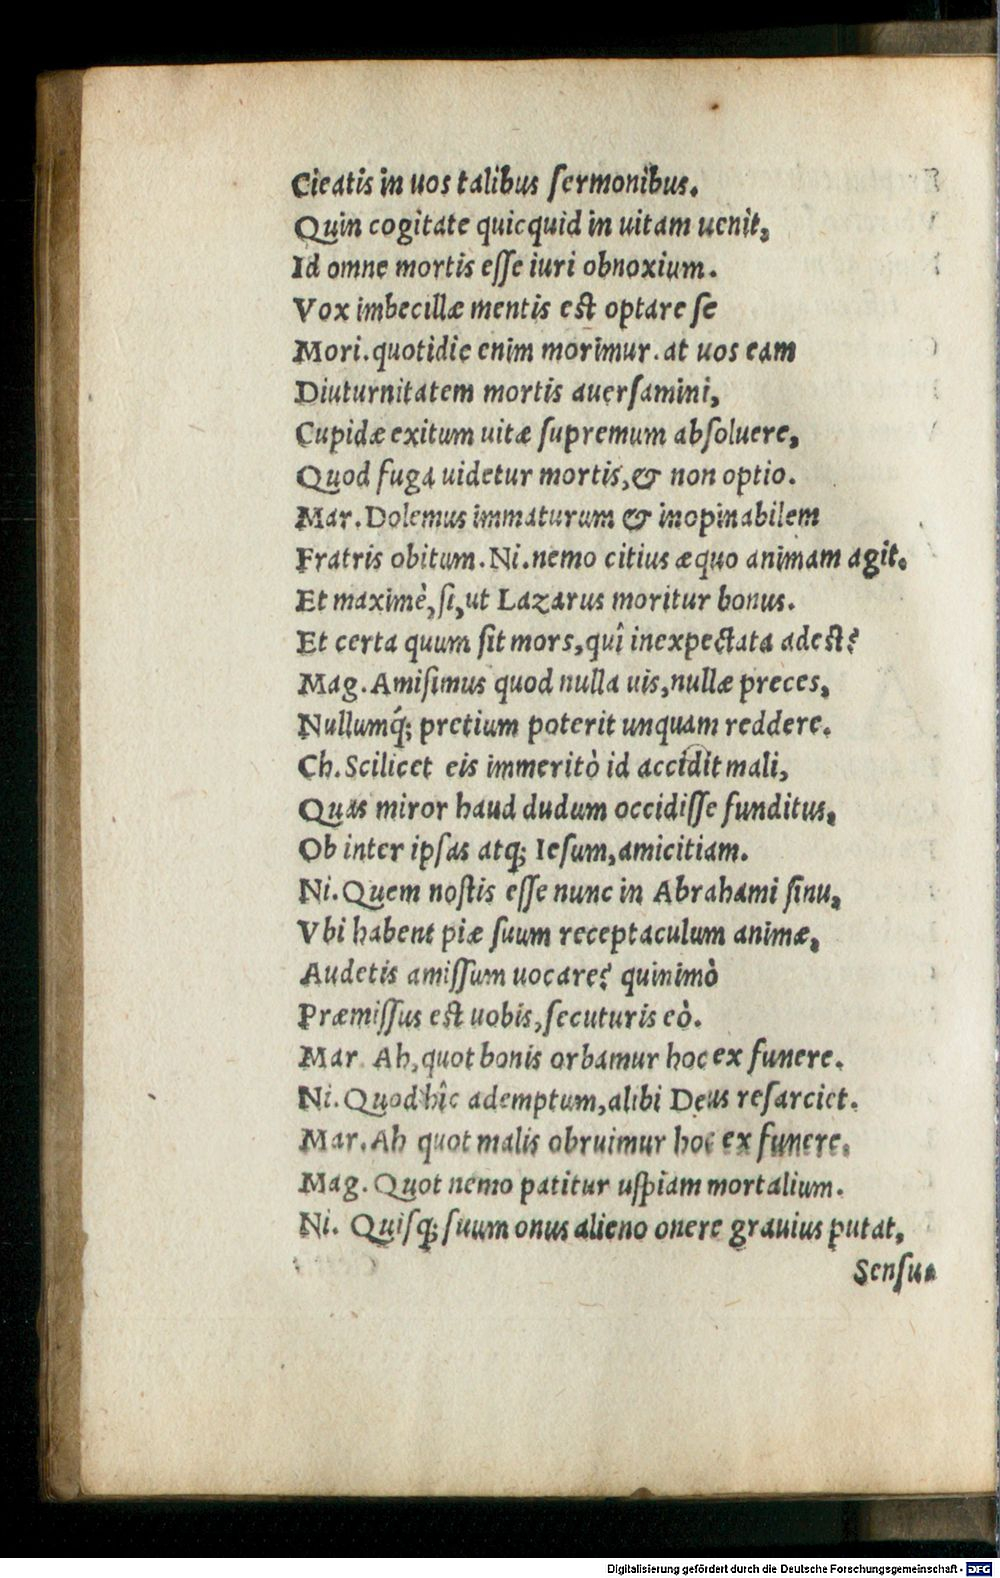 Cieatis in uos talibus sermonibus.
Quin cogitate quicquid in uitam uenit,
Id omne mortis esse iuri obnoxium.
Vox imbecillæ mentis est optare se
Mori. quotidie enim morimur. at uos eam
Diuturnitatem mortis auersamini,
Cupidæ exitum uitæ supremum absoluere,
Quod fuga uidetur mortis, & non optio.
Mar. Dolemus immaturum & inopinabilem
Fratris obitum. Ni. nemo citius æquo animam agit.
Et maximè, si, ut Lazarus moritur bonus.
Et certa quum sit mors, quî inexpectata adest?
Mag. Amisimus quod nulla uis, nullæ preces,
Nullumq́; pretium poterit unquam reddere.
Ch. Scilicet eis immeritò id accidit mali,
Quas miror haud dudum occidisse funditus,
Ob inter ipsas atq; Iesum, amicitiam.
Ni. Quem nostis esse nunc in Abrahami sinu,
Vbi habent piæ suum receptaculum animæ,
Audetis amissum uocare? quinimò
Præmissus est uobis, secuturis eò.
Mar. Ah, quot bonis orbamur hoc ex funere.
Ni. Quod hîc ademptum, alibi Deus resarciet.
Mar. Ah quot malis obruimur hoc ex funere.
Mag. Quot nemo patitur uspiam mortalium.
Ni. Quisq; suum onus alieno onere grauius putat,
Sensu-
Digitalisierung gefördert durch die Deutsche Forschungsgemeinschaft - DFG